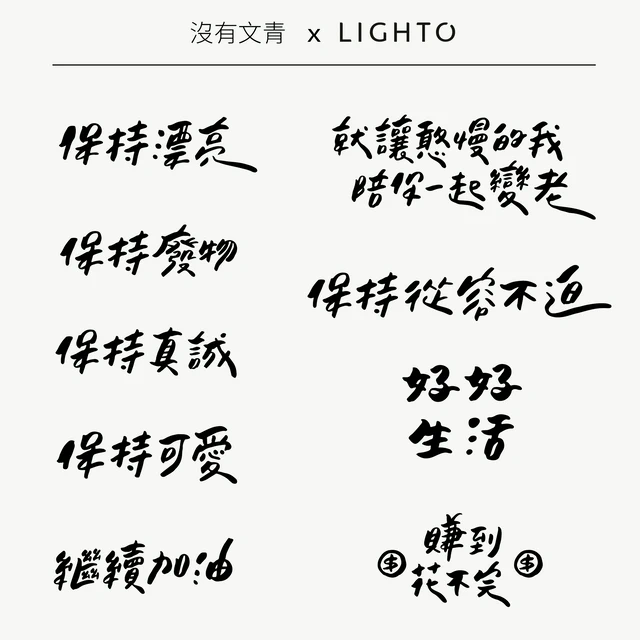 沒有文青 x LIGHTO
保持漂亮
保持廢物
保持真誠
保持可愛
繼續加油
就讓憨慢的我
陪你一起變老
保持從容不迫
好好
生活
賺到
$ $
花不完